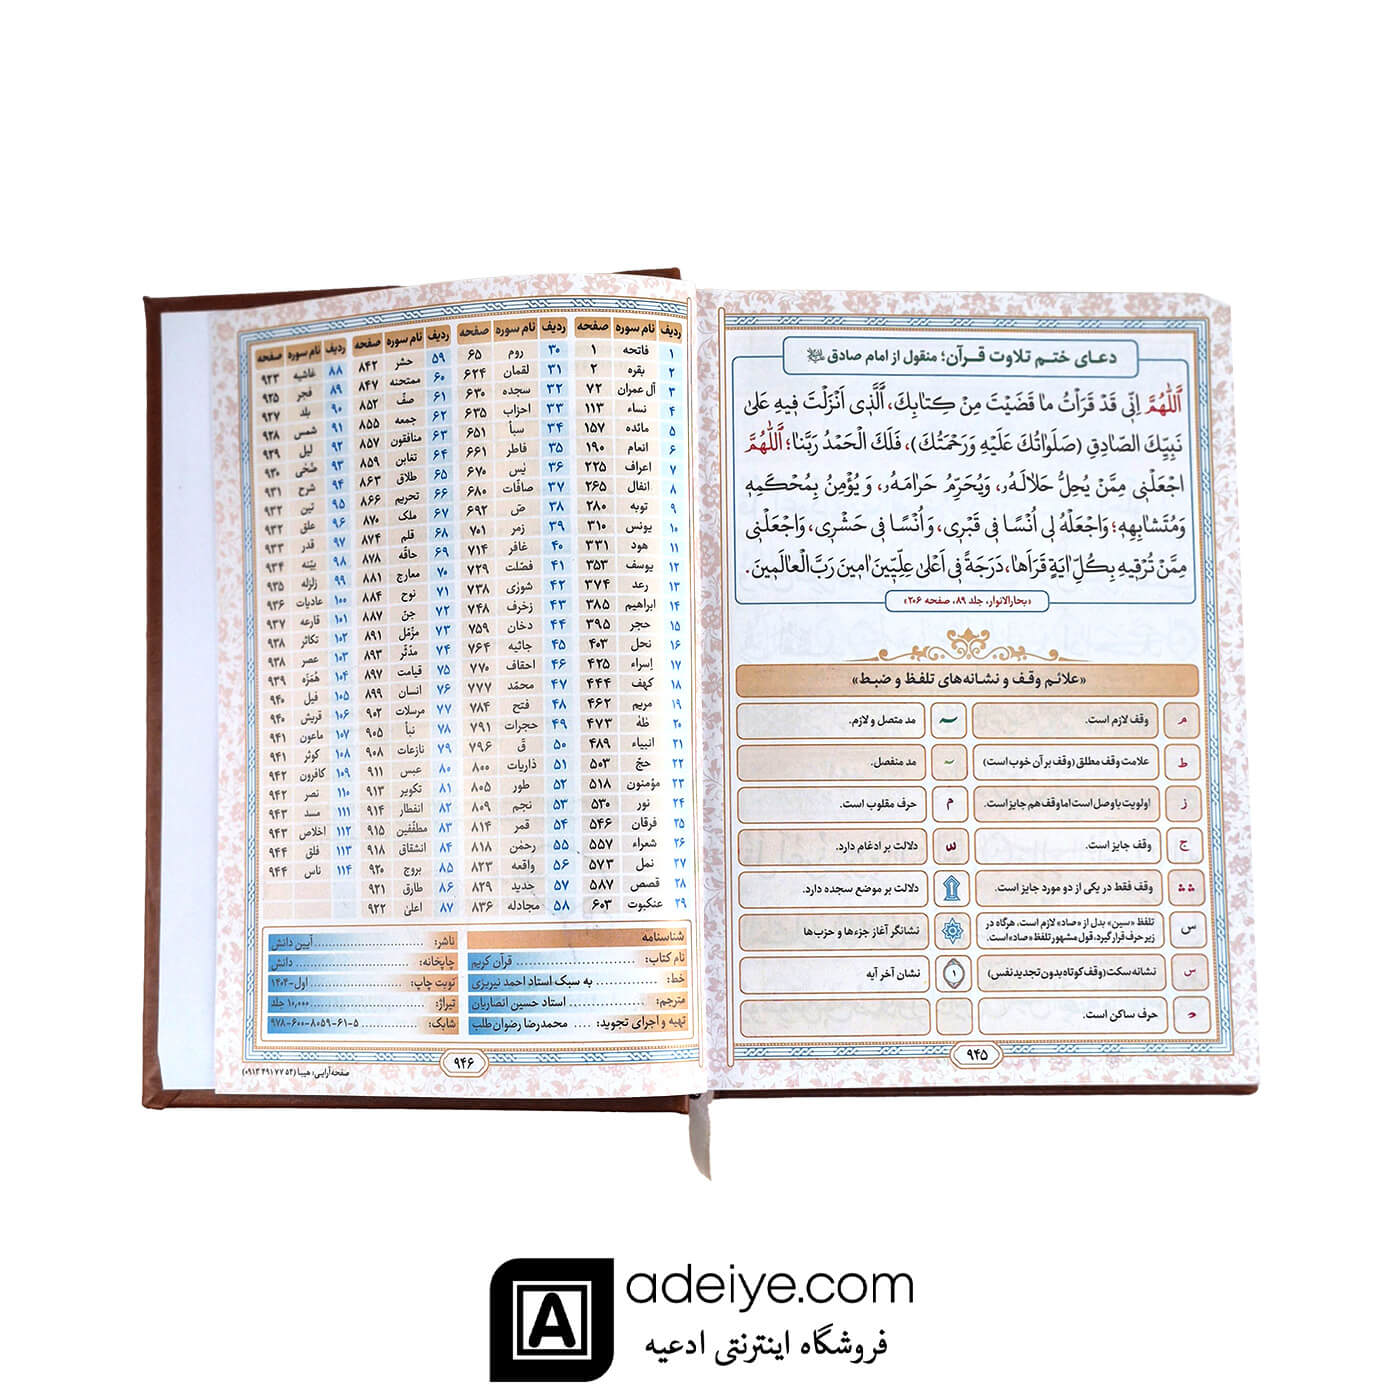 دعای ختم تلاوت قرآن؛ منقول از امام صادق
اَللّٰهُمَّ اِنّی قَدْ قَرَاْتُ ما قَضَیْتَ مِنْ کِتابِکَ، اَلَّذی اَنْزَلْتَ فیهِ عَلیٰ
نَبِیِّکَ الصّادِقِ (صَلَواتُکَ عَلَیْهِ وَرَحْمَتُکَ)، فَلَکَ الْحَمْدُ رَبَّنا؛ اَللّٰهُمَّ
اجْعَلْنی مِمَّنْ یُحِلُّ حَلالَهُ، وَیُحَرِّمُ حَرامَهُ، وَ یُؤْمِنُ بِمُحْکَمِهٖ
وَمُتَشابِهِهٖ؛ وَاجْعَلْهُ لی اُنْسًا فی قَبْری، وَ اُنْسًا فی حَشْری، وَاجْعَلْنی
مِمَّنْ تُرْقیهِ بِکُلِّ ایَةٍ قَرَاَها، دَرَجَةً فی اَعْلیٰ عِلِّیّینَ، امینَ رَبَّ الْعالَمینَ.
«بحارالانوار، جلد ۸۹، صفحه ۲۰۶»
«علائم وقف و نشانه‌های تلفظ و ضبط»
م وقف لازم است. مد متصل و لازم.
ط علامت وقف مطلق (وقف بر آن خوب است) مد منفصل.
ز اولویت با وصل است اما وقف هم جایز است. م حرف مقلوب است.
ج وقف جایز است. دلالت بر ادغام دارد.
وقف فقط در یکی از دو مورد جایز است. دلالت بر موضع سجده دارد.
س تلفظ «سین» بدل از «صاد» لازم است، هرگاه در
زیر حرف قرار گیرد، قول مشهور تلفظ «صاد» است. نشانگر آغاز جزءها و حزب‌ها
س نشانه سکت (وقف کوتاه بدون تجدید نفس) ۱ نشان آخر آیه
حرف ساکن است.
۹۴۵
ردیف نام سوره صفحه
۱ فاتحه ۱
۲ بقره ۲
۳ آل عمران ۷۲
۴ نساء ۱۱۳
۵ مائده ۱۵۷
۶ انعام ۱۹۰
۷ اعراف ۲۲۵
۸ انفال ۲۶۵
۹ توبه ۲۸۰
۱۰ یونس ۳۱۰
۱۱ هود ۳۳۱
۱۲ یوسف ۳۵۳
۱۳ رعد ۳۷۴
۱۴ ابراهیم ۳۸۵
۱۵ حجر ۳۹۵
۱۶ نحل ۴۰۳
۱۷ إسراء ۴۲۵
۱۸ کهف ۴۴۴
۱۹ مریم ۴۶۲
۲۰ طٰهٰ ۴۷۳
۲۱ انبیاء ۴۸۹
۲۲ حجّ ۵۰۳
۲۳ مؤمنون ۵۱۸
۲۴ نور ۵۳۰
۲۵ فرقان ۵۴۶
۲۶ شعراء ۵۵۷
۲۷ نمل ۵۷۳
۲۸ قصص ۵۸۷
۲۹ عنکبوت ۶۰۳
ردیف نام سوره صفحه
۳۰ روم ۶۵
۳۱ لقمان ۶۲۴
۳۲ سجده ۶۳۰
۳۳ احزاب ۶۳۵
۳۴ سبأ ۶۵۱
۳۵ فاطر ۶۶۱
۳۶ یٰس ۶۷۰
۳۷ صافّات ۶۸۰
۳۸ صٓ ۶۹۲
۳۹ زمر ۷۰۱
۴۰ غافر ۷۱۴
۴۱ فصّلت ۷۲۹
۴۲ شوریٰ ۷۳۸
۴۳ زخرف ۷۴۸
۴۴ دخان ۷۵۹
۴۵ جاثیه ۷۶۴
۴۶ احقاف ۷۷۰
۴۷ محمّد ۷۷۷
۴۸ فتح ۷۸۴
۴۹ حجرات ۷۹۱
۵۰ قٓ ۷۹۶
۵۱ ذاریات ۸۰۰
۵۲ طور ۸۰۵
۵۳ نجم ۸۰۹
۵۴ قمر ۸۱۴
۵۵ رحمٰن ۸۱۸
۵۶ واقعه ۸۲۳
۵۷ حدید ۸۲۹
۵۸ مجادله ۸۳۶
ردیف نام سوره صفحه
۵۹ حشر ۸۴۲
۶۰ ممتحنه ۸۴۷
۶۱ صفّ ۸۵۲
۶۲ جمعه ۸۵۵
۶۳ منافقون ۸۵۷
۶۴ تغابن ۸۵۹
۶۵ طلاق ۸۶۳
۶۶ تحریم ۸۶۶
۶۷ ملک ۸۷۰
۶۸ قلم ۸۷۴
۶۹ حاقّه ۸۷۸
۷۰ معارج ۸۸۱
۷۱ نوح ۸۸۴
۷۲ جنّ ۸۸۷
۷۳ مزّمّل ۸۹۱
۷۴ مدّثّر ۸۹۳
۷۵ قیامت ۸۹۷
۷۶ انسان ۸۹۹
۷۷ مرسلات ۹۰۲
۷۸ نبأ ۹۰۵
۷۹ نازعات ۹۰۸
۸۰ عبس ۹۱۱
۸۱ تکویر ۹۱۳
۸۲ انفطار ۹۱۴
۸۳ مطفّفین ۹۱۵
۸۴ انشقاق ۹۱۸
۸۵ بروج ۹۲۰
۸۶ طارق ۹۲۱
۸۷ اعلیٰ ۹۲۲
ردیف نام سوره صفحه
۸۸ غاشیه ۹۲۳
۸۹ فجر ۹۲۵
۹۰ بلد ۹۲۷
۹۱ شمس ۹۲۸
۹۲ لیل ۹۲۹
۹۳ ضُحٰی ۹۳۰
۹۴ شرح ۹۳۱
۹۵ تین ۹۳۲
۹۶ علق ۹۳۲
۹۷ قدر ۹۳۳
۹۸ بیّنه ۹۳۴
۹۹ زلزله ۹۳۵
۱۰۰ عادیات ۹۳۶
۱۰۱ قارعه ۹۳۷
۱۰۲ تکاثر ۹۳۸
۱۰۳ عصر ۹۳۸
۱۰۴ هُمَزَه ۹۳۹
۱۰۵ فیل ۹۴۰
۱۰۶ قریش ۹۴۰
۱۰۷ ماعون ۹۴۱
۱۰۸ کوثر ۹۴۱
۱۰۹ کافرون ۹۴۲
۱۱۰ نصر ۹۴۲
۱۱۱ مسد ۹۴۳
۱۱۲ اخلاص ۹۴۳
۱۱۳ فلق ۹۴۴
۱۱۴ ناس ۹۴۴
شناسنامه
نام کتاب: ........ قرآن کریم
خط: ........ به سبک استاد احمد نیریزی
مترجم: ........ استاد حسین انصاریان
تهیه و اجرای تجوید: .... محمدرضا رضوان‌طلب
ناشر: ........ آیین دانش
چاپخانه: ........ دانش
نوبت چاپ: ........ اول-۱۴۰۲
تیراژ: ........ ۱۰,۰۰۰ جلد
شابک: ........ ۹۷۸-۶۰۰-۸۰۵۹-۶۱-۵
۹۴۶
صفحه‌آرایی: هیبا (۰۹۱۳ ۴۹۱ ۷۷ ۵۲)
A adeiye.com
فروشگاه اینترنتی ادعیه